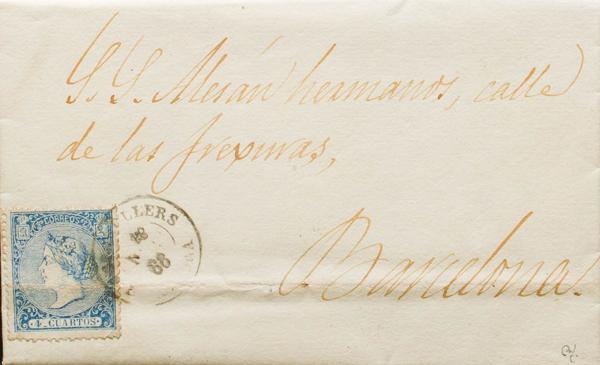 S. S. Mesán hermanos, calle
de las frexuras,
Barcelona.
CORREOS
4 CUARTOS
LLERS
66